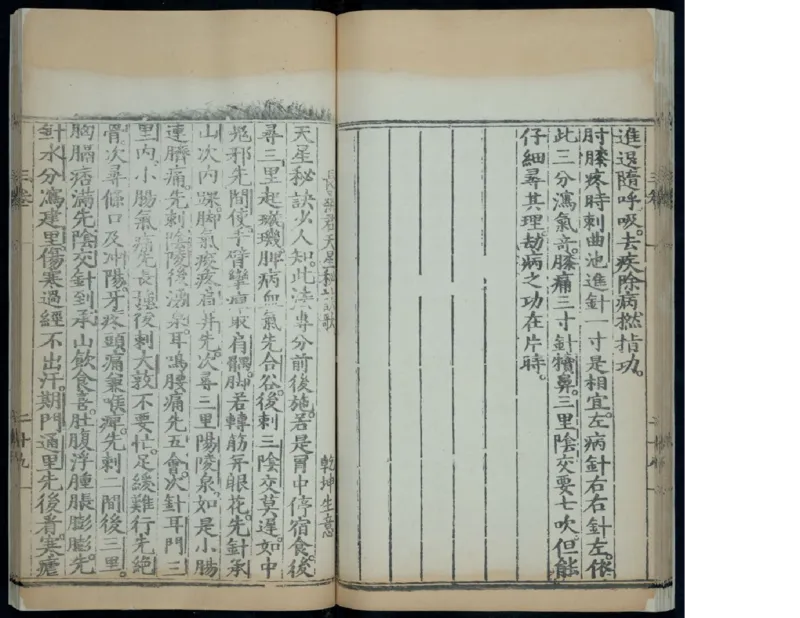 進退隨呼吸。去疾除病撚指功。
肘膝疼時刺曲池進針一寸是相宜。左病針右右針左。依
此三分瀉氣奇。膝痛三寸針犢鼻。三里陰交要七吹。但能
仔細尋其理。劫病之功在片時。
長桑君天星秘訣歌 乾坤生意
天星秘訣少人知。此法專分前後施。若是胃中停宿食。後
尋三里起璇璣。脾病血氣先合谷。後刺三陰交莫遲。如中
鬼邪先間使。手臂攣痺取肩髃。脚若轉筋并眼花。先針承
山次內踝。脚氣痠疼肩井先。次尋三里陽陵泉。如是小腸
連臍痛。先刺陰陵後湧泉。耳鳴腰痛先五會。次針耳門三
里內。小腸氣痛先長強。後刺大敦不要忙。足緩難行先絕
骨。次尋條口及冲陽。牙疼頭痛兼喉痺。先刺二間後三里。
胸膈痞滿先陰交。針到承山飲食喜。肚腹浮腫脹膨膨。先
針水分瀉建里。傷寒過經不出汗。期門通里先後看。寒瘧
三卷
二十九